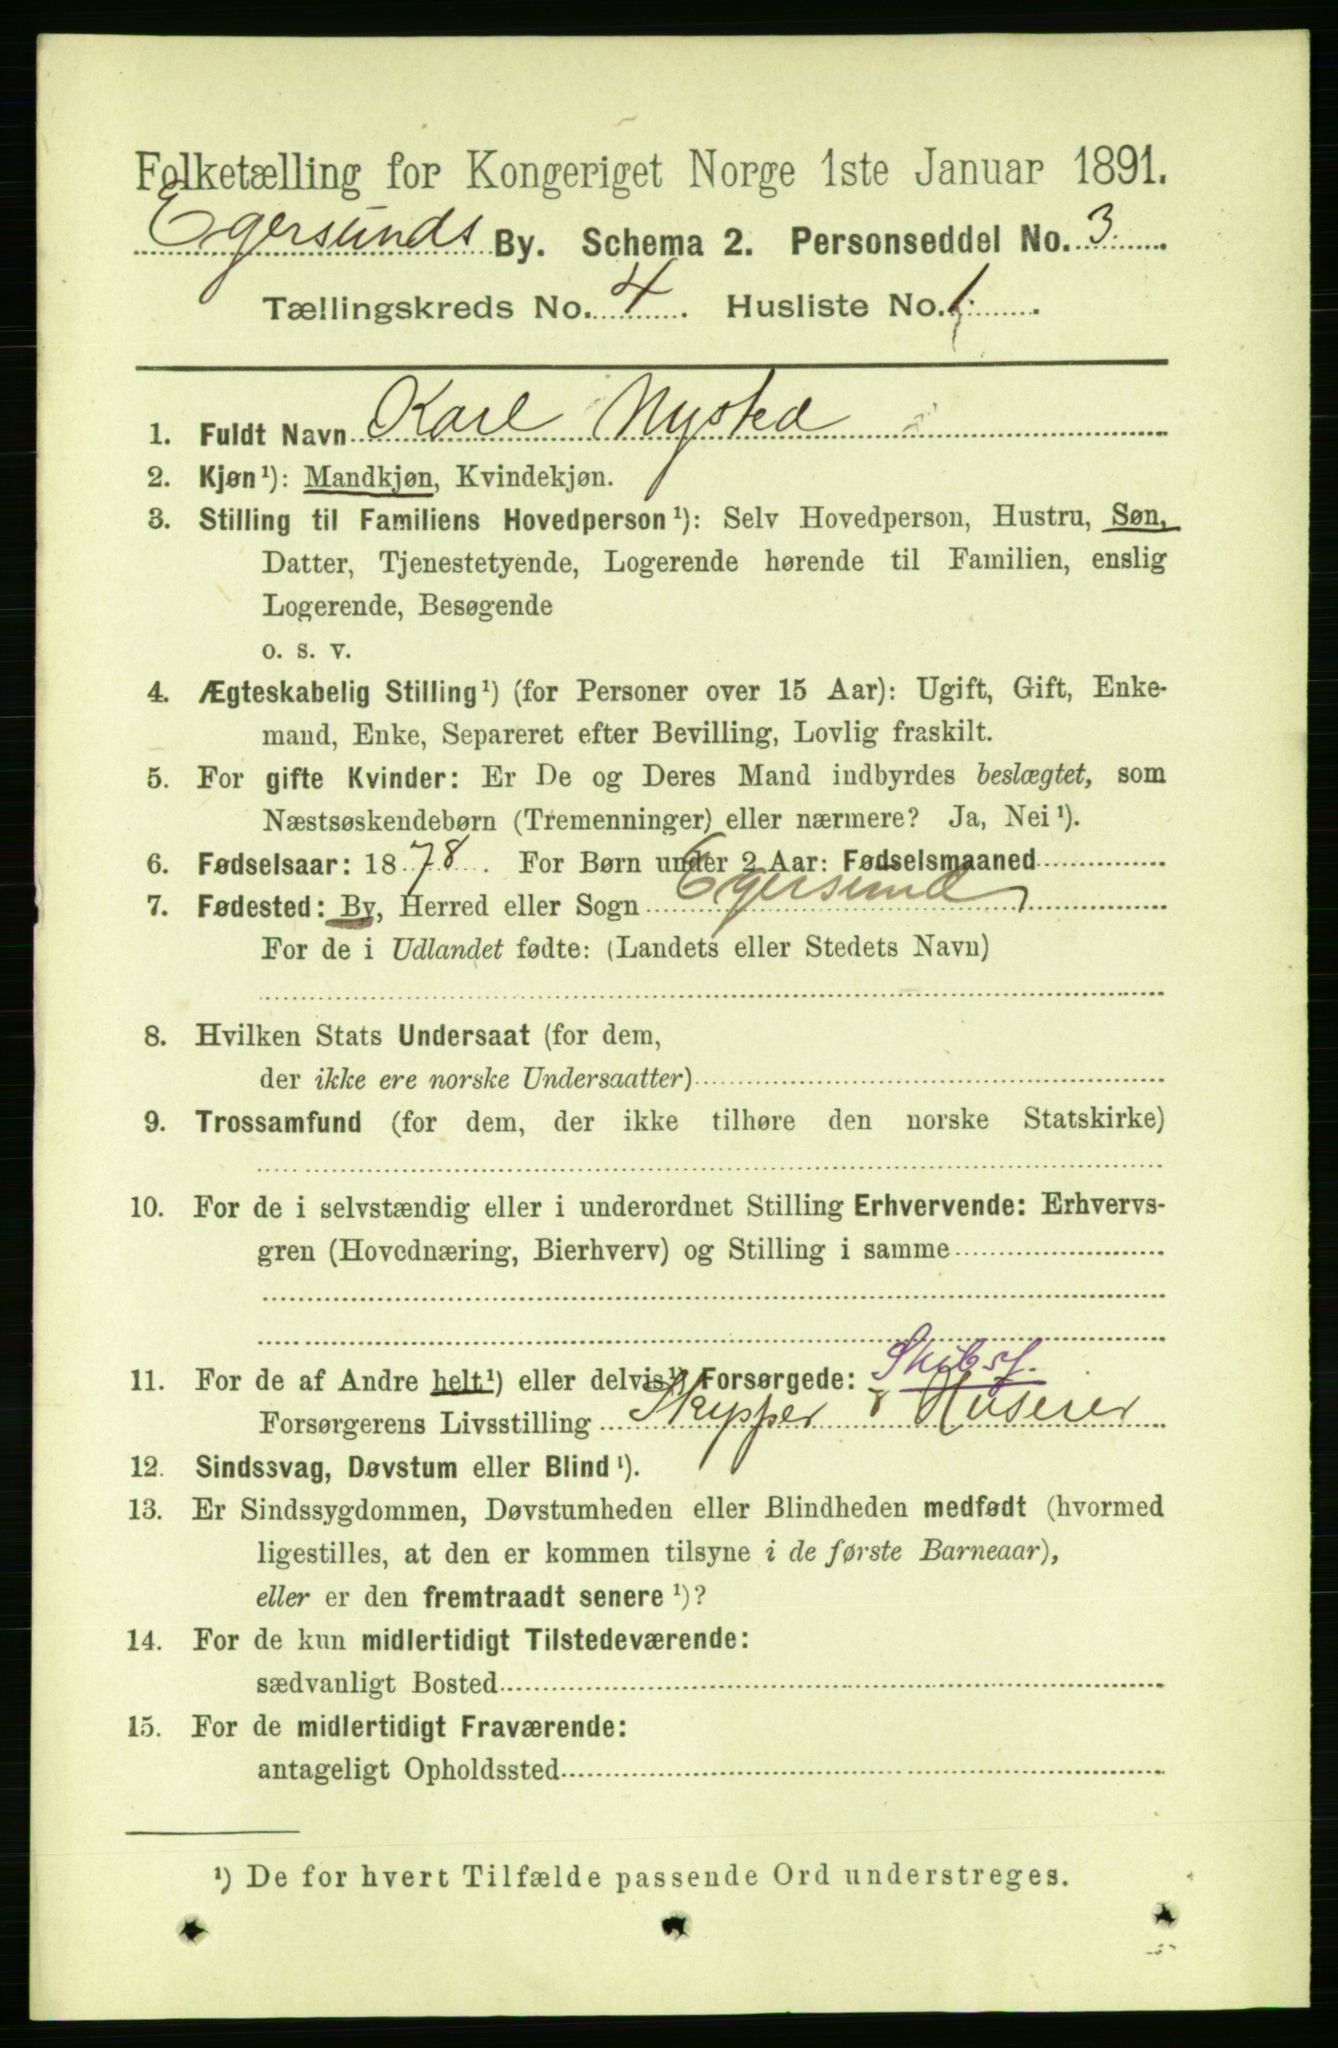 Folketælling for Kongeriget Norge 1ste Januar 1891.
Egersunds By. Schema 2. Personseddel No. 3
Tællingskreds No. 4. Husliste No. 1.
1. Fuldt Navn Karl Nysted
2. Kjøn¹): Mandkjøn, Kvindekjøn.
3. Stilling til Familiens Hovedperson¹): Selv Hovedperson, Hustru, Søn,
Datter, Tjenestetyende, Logerende hørende til Familien, enslig
Logerende, Besøgende
o. s. v.
4. Ægteskabelig Stilling¹) (for Personer over 15 Aar): Ugift, Gift, Enke-
mand, Enke, Separeret efter Bevilling, Lovlig fraskilt.
5. For gifte Kvinder: Er De og Deres Mand indbyrdes beslægtet, som
Næstsøskendebørn (Tremenninger) eller nærmere? Ja, Nei¹).
6. Fødselsaar: 1878. For Børn under 2 Aar: Fødselsmaaned
7. Fødested: By, Herred eller Sogn Egersund
For de i Udlandet fødte: (Landets eller Stedets Navn)
8. Hvilken Stats Undersaat (for dem,
der ikke ere norske Undersaatter)
9. Trossamfund (for dem, der ikke tilhøre den norske Statskirke)
10. For de i selvstændig eller i underordnet Stilling Erhvervende: Erhvervs-
gren (Hovednæring, Bierhverv) og Stilling i samme
Skibsf.
11. For de af Andre helt¹) eller delvis¹) Forsørgede:
Forsørgerens Livsstilling Skypper & Huseier
12. Sindssvag, Døvstum eller Blind¹).
13. Er Sindssygdommen, Døvstumheden eller Blindheden medfødt (hvormed
ligestilles, at den er kommen tilsyne i de første Barneaar),
eller er den fremtraadt senere¹)?
14. For de kun midlertidigt Tilstedeværende:
sædvanligt Bosted
15. For de midlertidigt Fraværende:
antageligt Opholdssted
¹) De for hvert Tilfælde passende Ord understreges.